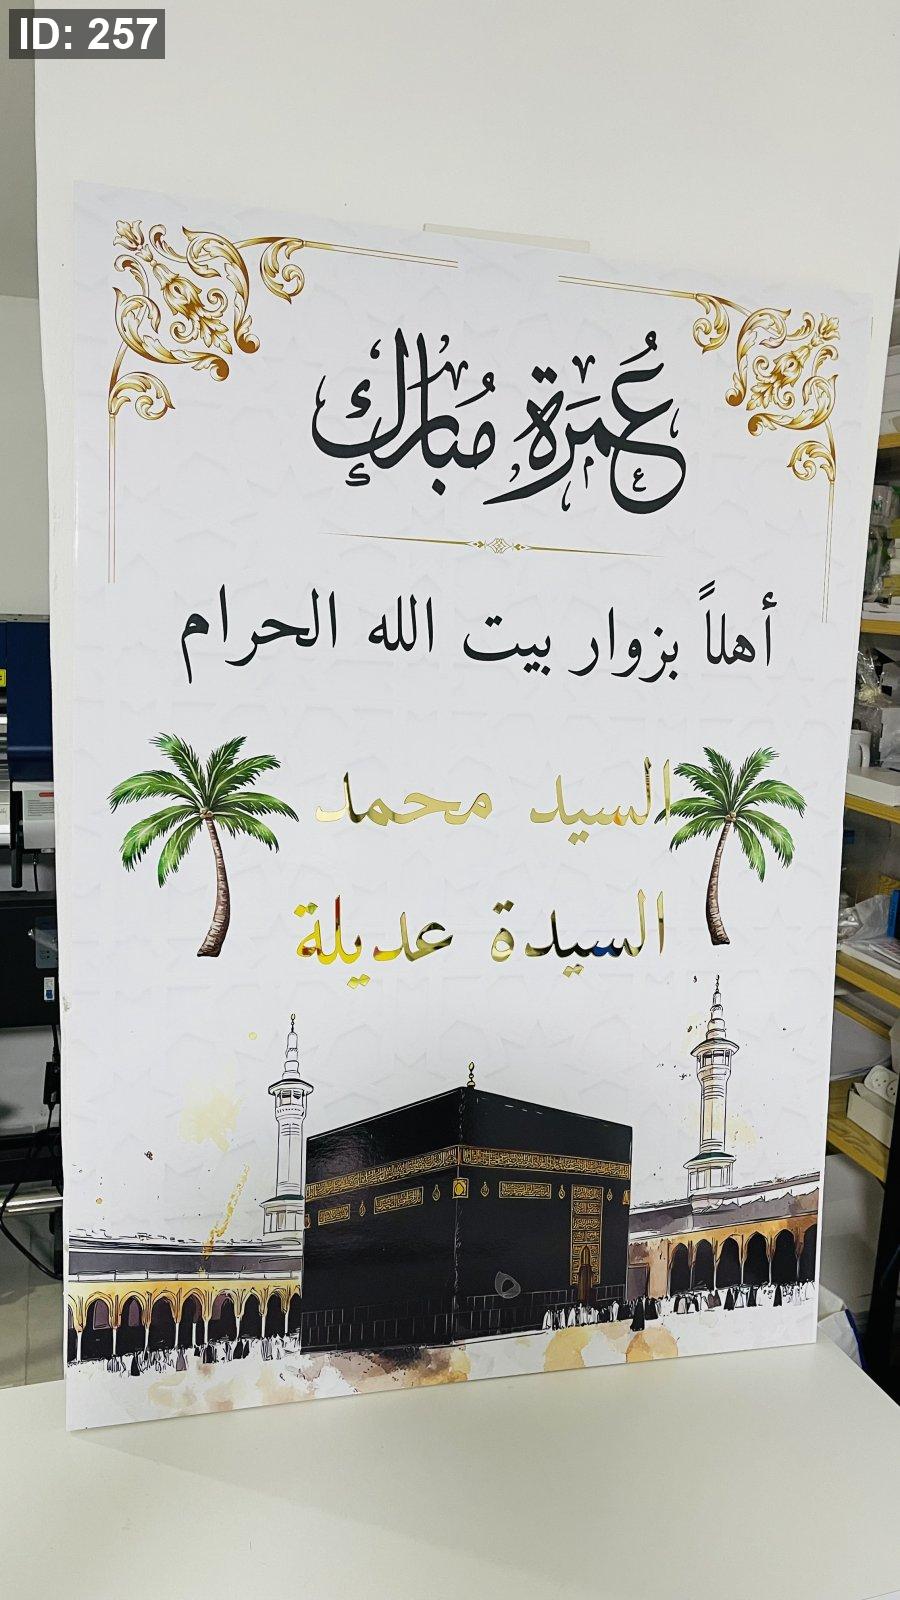 ID: 257
عُمرَة مُبارك
أهلاً بزوار بيت الله الحرام
السيد محمد
السيدة عديلة